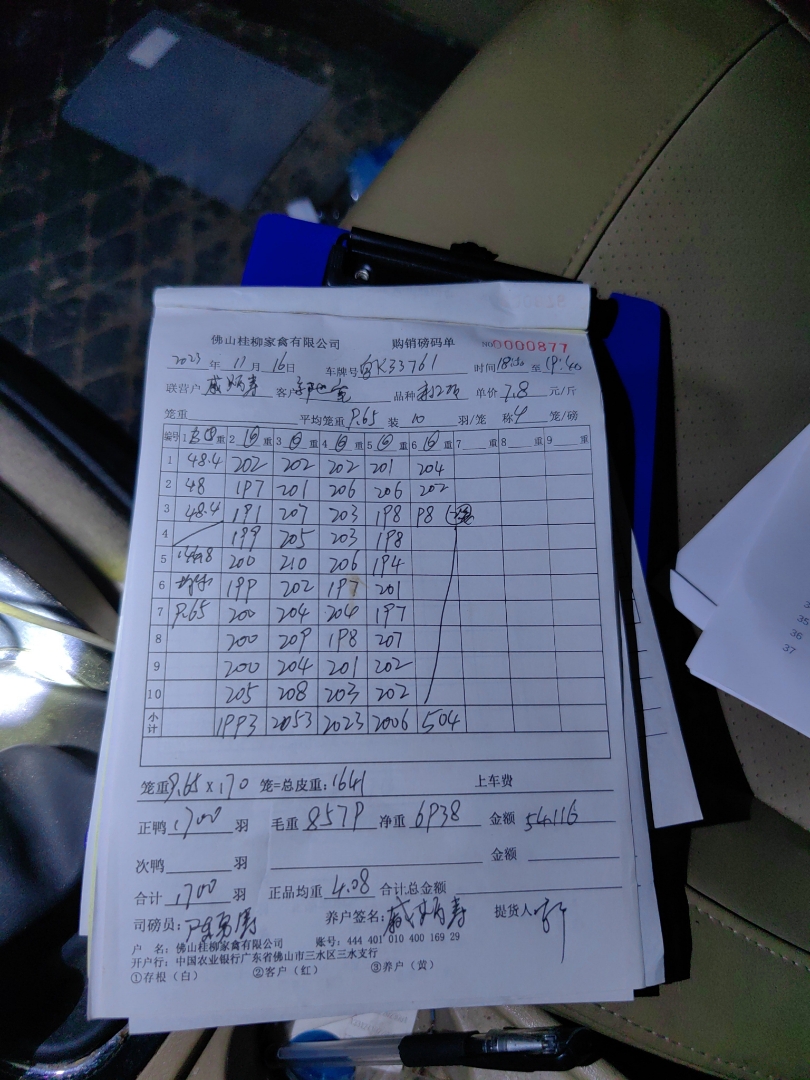 佛山桂柳家禽有限公司 购销磅码单 NO 0000877
2023 年 11 月 16 日 车牌号 K33761 时间 至 19:40
联营户 客户 品种 单价 7.8 元/斤
笼重 平均笼重 9.65 装 10 羽/笼 称 4 笼/磅
编号 1 重 2 重 3 重 4 重 5 重 6 重 7 重 8 重 9 重
1 48.4 202 202 202 201 204
2 48 197 201 206 206 202
3 48.4 191 207 203 198 98
4 199 205 203 198
5 200 210 206 194
6 199 202 197 201
7 9.65 200 204 204 197
8 200 209 198 207
9 200 204 201 202
10 205 208 203 202
小计 1993 2053 2023 2006 504
笼重 9.65 x 170 笼=总皮重: 1641 上车费
正鸭 1700 羽 毛重 8579 净重 6938 金额 54116
次鸭 羽 金额
合计 1700 羽 正品均重 4.08 合计总金额
司磅员: 养户签名: 提货人
户 名: 佛山桂柳家禽有限公司 账号: 444 401 010 400 169 29
开户行: 中国农业银行广东省佛山市三水区三水支行
①存根（白） ②客户（红） ③养户（黄）
35
36
37